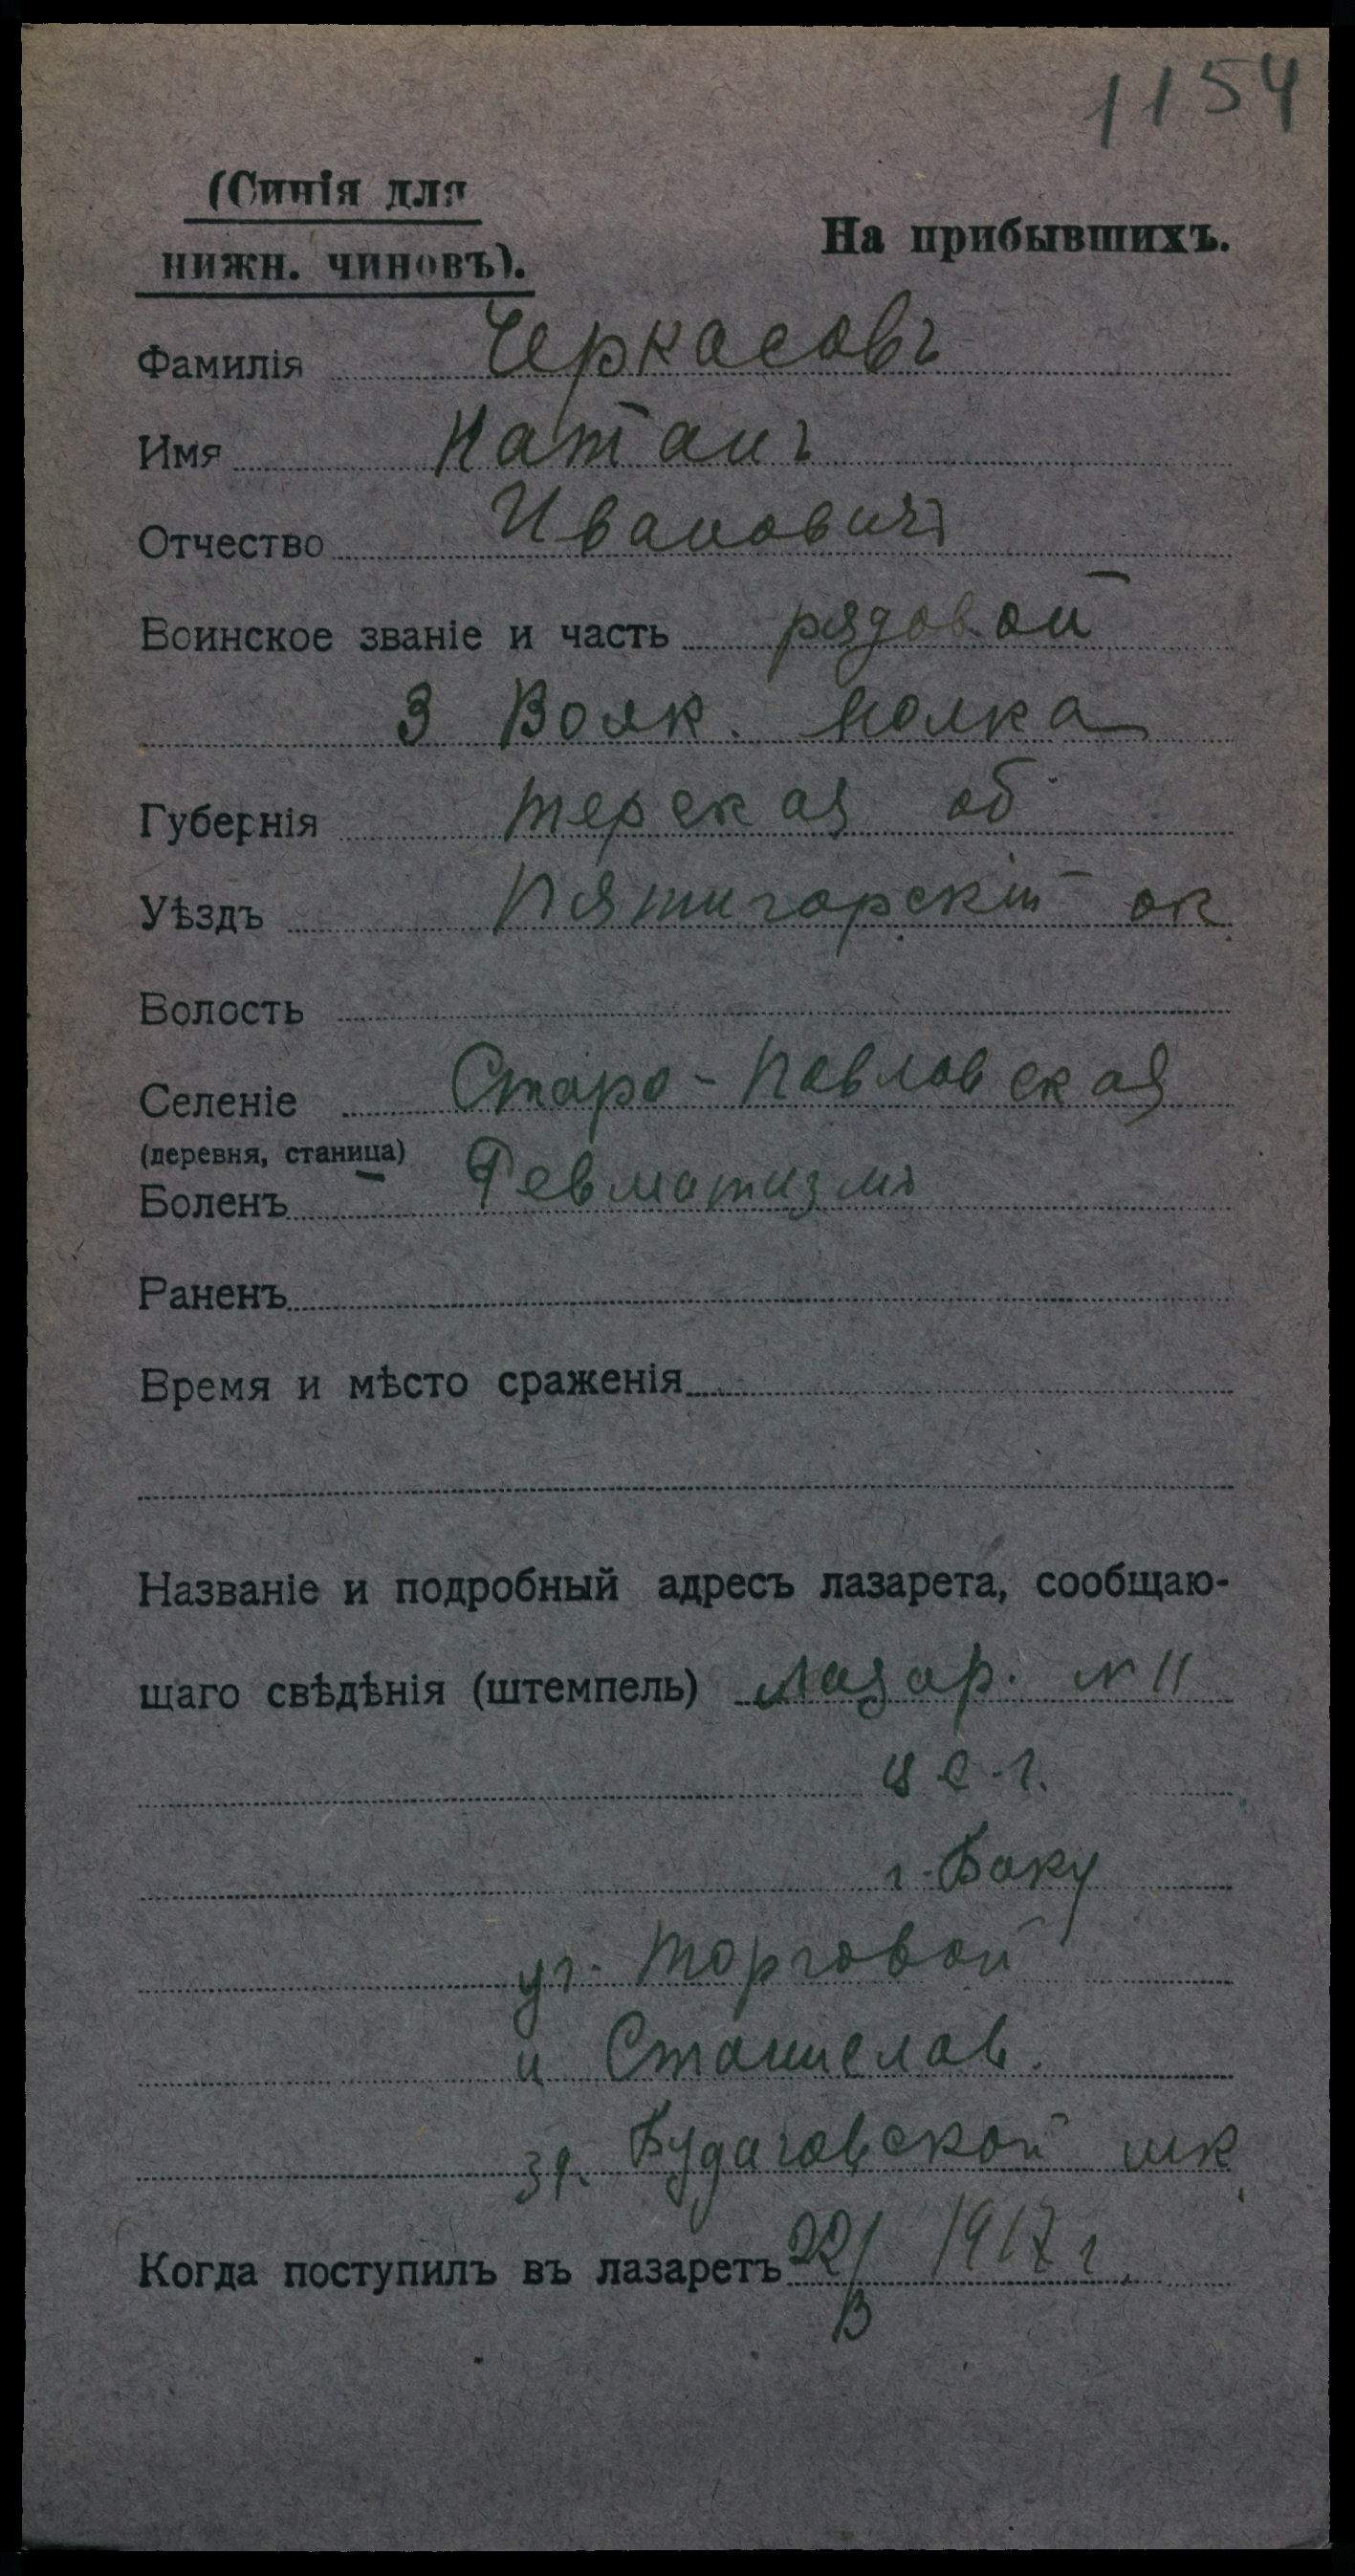 1154
(Синія для
нижн. чиновъ).
На прибывшихъ.
Фамилія Черкасовъ
Имя Натанъ
Отчество Ивановичъ
Воинское званіе и часть рядовой
3 Волж. полка
Губернія Терская об
Уѣздъ Пятигорскій ок
Волость
Селеніе Старо-Павловская
(деревня, станица)
Боленъ Ревматизмъ
Раненъ
Время и мѣсто сраженія
Названіе и подробный адресъ лазарета, сообщаю-
щаго свѣдѣнія (штемпель) Лазар. № 11
в с. г.
г. Баку
уг. Торговой
и Станислав.
зд. Будаговской шк
Когда поступилъ въ лазаретъ 22/ 1917 г.